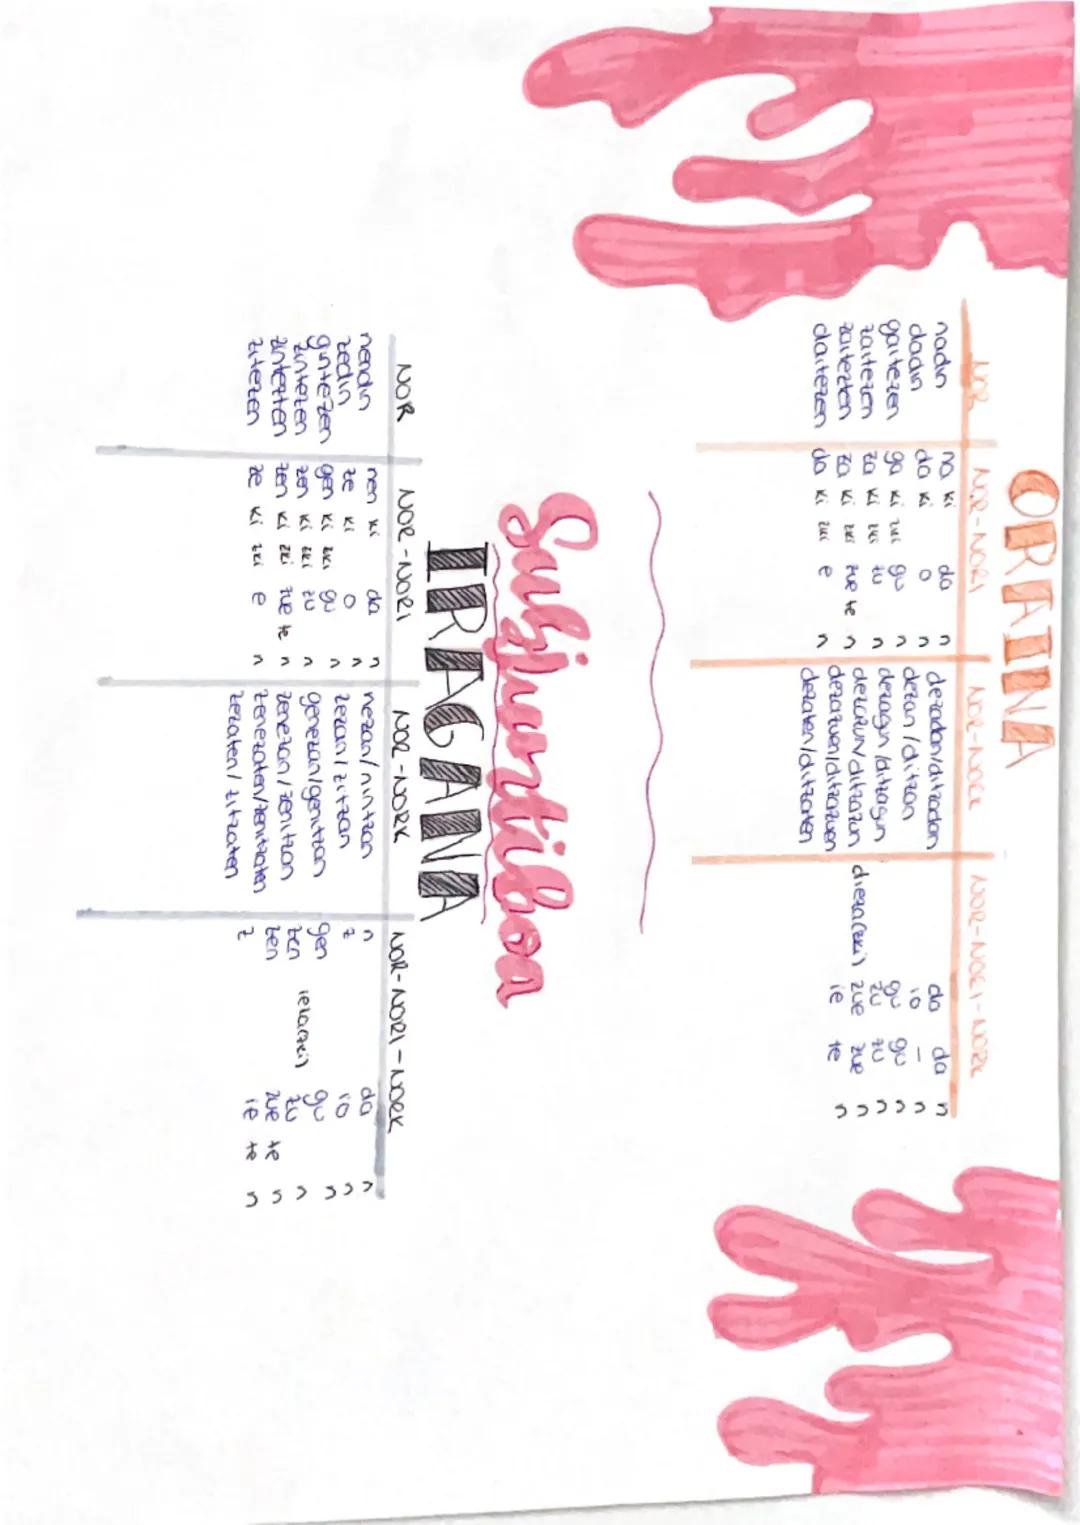 ORAINA
NOR NOR-NORI NOR-NORK NOR-NORI-NORK
nadin na ki da n dezadan/ditzadan da da n
dadin da ki o n dezan/ditzan io - n
gaitezen ga ki zki gu n dezagun/ditzagun gu gu n
zaitezen za ki zki zu n dezazun/ditzazun zu zu n
zaitezten za ki zki zue te n dezazuen/ditzazuen dieza(zki) zue zue n
daitezen da ki zki e n dezaten/ditzaten ie te n
Subjuntiboa
IRAGANA
NOR NOR-NORI NOR-NORK NOR-NORI-NORK
nendin nen ki da n nezan/nintzan n da n
zedin ze ki o n zezan/zitzan z io n
gintezen gen ki zki gu n genezan/genitzan gen gu n
zintezen zen ki zki zu n zenezan/zenitzan zen ieza(zki) zu n
zintezten zen ki zki zue te n zenezaten/zenitzaten zen zue te n
zitezen ze ki zki e n zezaten/zitzaten z ie te n